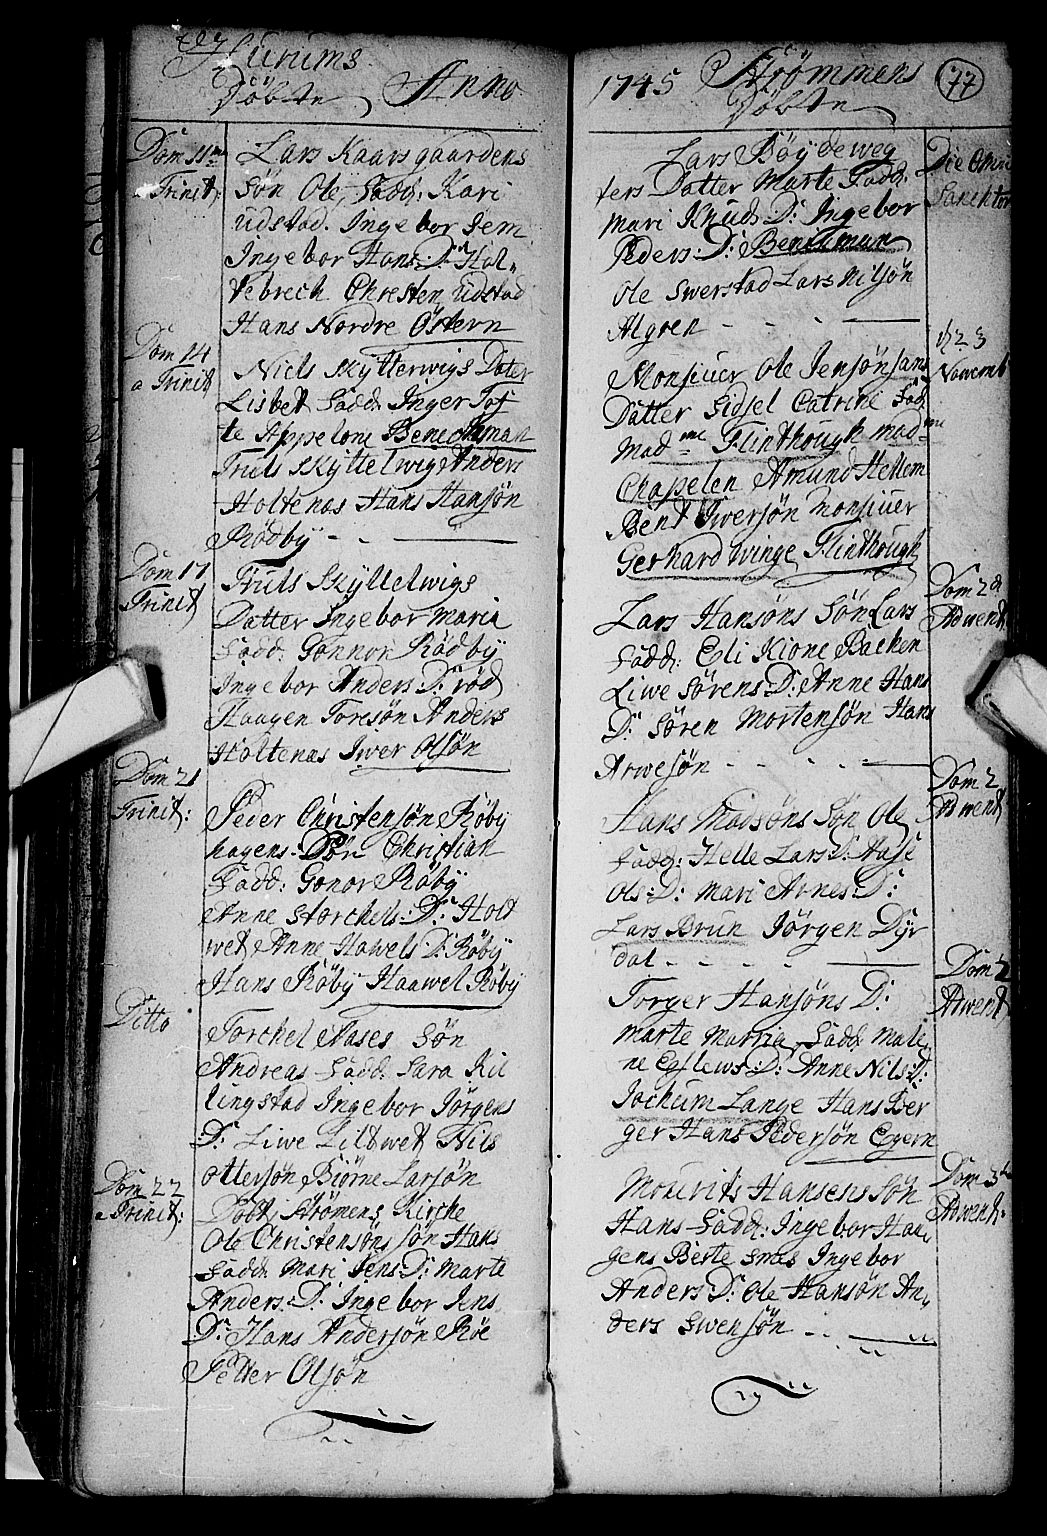 Hurums
Döbte Anno
Dom 11
Trinit:
Lars Kaarsgaardens
Søn Ole, Fadd: Kari
Udstad. Ingebor Jem
Ingebor Hans: D: Hol„
tebrech Christen Udstad
Hans Nordre Östern
Dom 14
a Trinit
Niels Skytterwigs Dater
Lisbet Fadd: Inger Tof
te Appelone Benechman
Truls Skyttelwigs Anders
Holtenæs Hans Hansøn
Rödby - - -
Dom 17
a Trinit
Truls Skyttelwigs
Datter Ingebor Maria
Fadd: Gonnor Rödby
Ingebor Anders D: röd
Haagen Toresön Anders
Holtenæs Iwer Olsön
Dom 21
Trinit:
Peder Christensön Röby
hagens Sön Christian
Fadd: Gonor Röby
Anne Storchels: D: Holt
wet Anne Hawels: D: Röby
Hans Röby Haawel Röby
Ditto
Torchel Aases Søn
Andreas Fadd: Sara Kil
lingstad Ingebor Jörgens
D: Liwe Liltwet Nils
Ottersøn Biørne Larsøn
Dom 22
a Trinit:
Döbt, Strömens Kirche
Ole Christensöns Søn Hans
Fadd: Mari Jens: D: Marte
Anders: D: Ingebor Jens
D: Hans Andersøn Röe
Petter Olsøn
1745 Strömmens 77
Döbte
Lars Böydeweg
fers Datter Marte Fadd:
Mari Knuds D: Ingebor
Peders: D: Benchman
Ole Swerstad Lars Nilsön
Algren - - -
Die Omni
Sanctor
23
Novemb
Monsiuer Ole Jensøns
Datter Sidsel Catrine Fad
Mad me Flinthough mad me
Chapelen Amund Hellem
Bent Iwersön Monsiuer
Gerhard Winge Flinthough
Dom 2
Adwent
Lars Hansöns Søn Lars
Fadd: Eli Kione Backen
Liwe Sörens D: Anne Hans
D: Sören Mortensøn Hans
Arwesøn - - - -
Dom 2
Adwent
Hans Madsöns Søn Ole
Fadd: Helle Lars D: Aase
Ols: D: Mari Arnes: D:
Lars Brun Jörgen Dyr
dal - - - -
Dom 2
Adwent
Torger Hansöns D:
Marte Marria Fadd: Male
ne Egslews: D: Anne Nils: D:
Jochum Lange Hans Ber
ger Hans Pedersøn Egern
Dom 3
Adwent:
Mouerits Hansens Søn
Hans Fadd: Ingebor Haa„
gens Berte Smes Ingebor
Anders D: Ole Hansøn An„
ders Swensøn - -